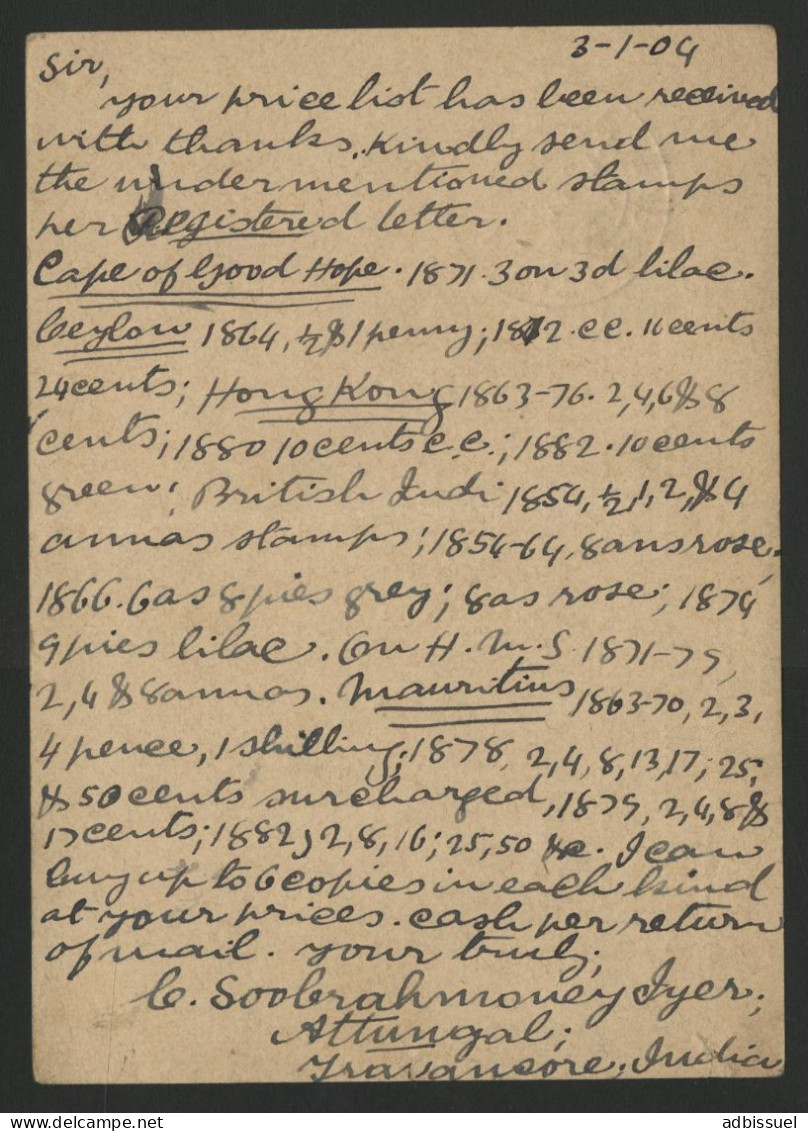 3-1-04
Sir,
your price list has been received
with thanks. Kindly send me
the undermentioned stamps
per Registered letter.
Cape of Good Hope. 1871. 3 on 3d lilac.
Ceylon 1864, ½ & 1 penny; 1872. cc. 16 cents
24 cents; Hong Kong 1863-76. 2, 4, 6 & 8
cents; 1880 10 cents c.c.; 1882. 10 cents
green; British Indi 1854, ½, 1, 2, & 4
annas stamps; 1854-64, 8 ans rose.
1866. 6 as 8 pies grey; 8 as rose; 1874
9 pies lilac. On H.M.S. 1871-79,
2, 4 & 8 annas. Mauritius 1863-70, 2, 3,
4 pence, 1 shilling; 1878, 2, 4, 8, 13, 17; 25;
& 50 cents surcharged, 1879, 2, 4, 8 &
17 cents; 1882, 2, 8, 16; 25, 50 &c. I can
buy up to 6 copies in each kind
at your prices. cash per return
of mail. your truly;
C. Soobrahmoney Iyer;
Attungal;
Travancore. India
adbissuel